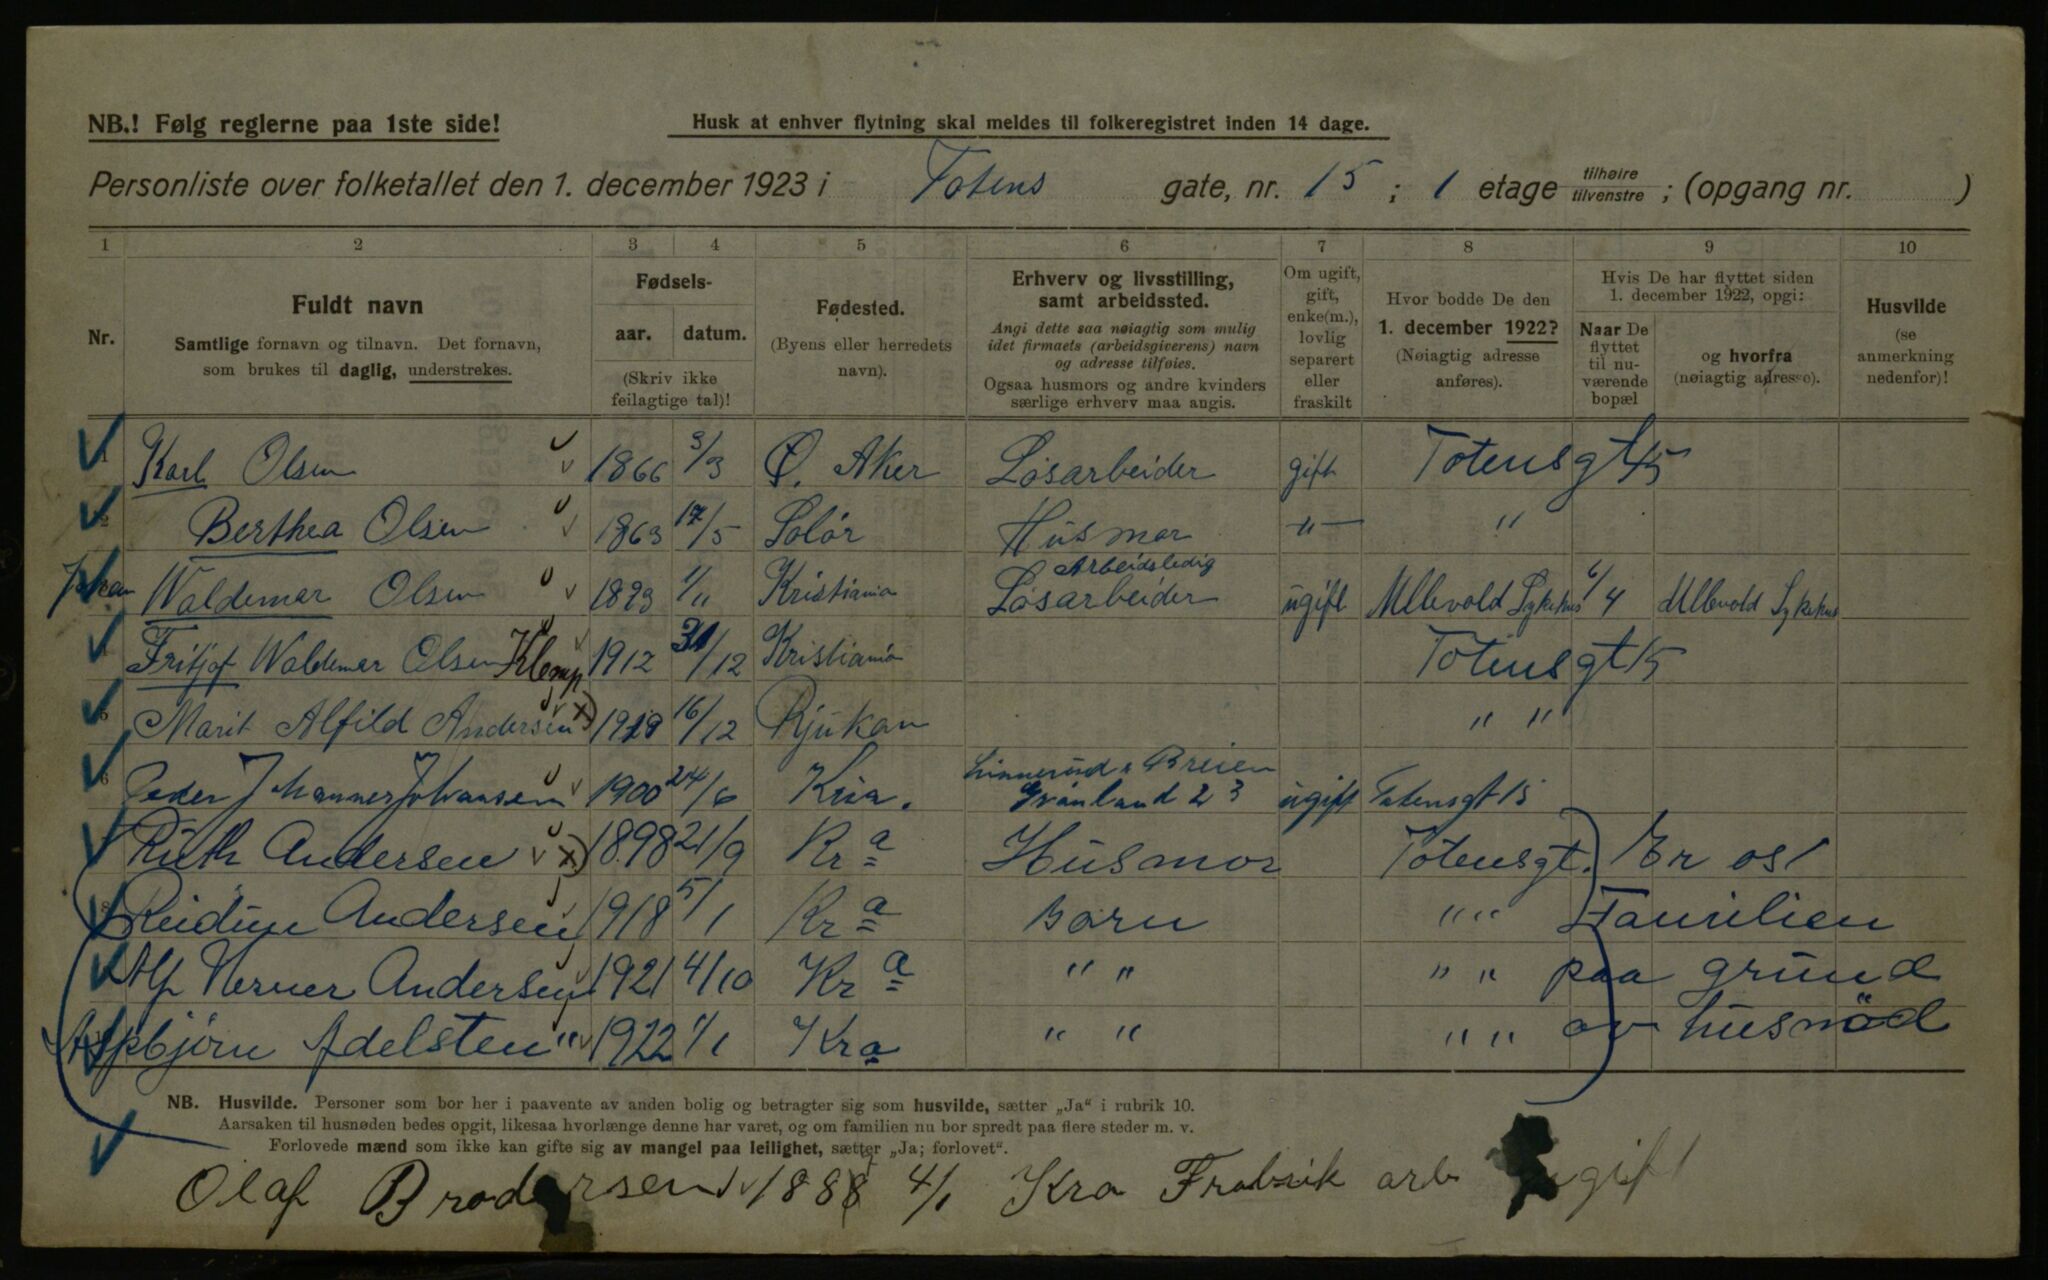 NB.! Følg reglerne paa 1ste side!
Husk at enhver flytning skal meldes til folkeregistret inden 14 dage.
Personliste over folketallet den 1. december 1923 i Totens gate, nr. 15 ; 1 etage tilhøire tilvenstre ; (opgang nr. )
1 2 3 4 5 6 7 8 9 10
Nr.
Fuldt navn
Samtlige fornavn og tilnavn. Det fornavn,
som brukes til daglig, understrekes.
Fødsels-
aar. datum.
(Skriv ikke
feilagtige tal)!
Fødested.
(Byens eller herredets
navn).
Erhverv og livsstilling,
samt arbeidssted.
Angi dette saa nøiagtig som mulig
idet firmaets (arbeidsgiverens) navn
og adresse tilføies.
Ogsaa husmors og andre kvinders
særlige erhverv maa angis.
Om ugift,
gift,
enke(m.),
lovlig
separert
eller
fraskilt
Hvor bodde De den
1. december 1922?
(Nøiagtig adresse
anføres).
Hvis De har flyttet siden
1. december 1922, opgi:
Naar De
flyttet
til nu-
værende
bopæl
og hvorfra
(nøiagtig adresse).
Husvilde
(se
anmerkning
nedenfor)!
1 Karl Olsen 1866 3/3 Ø. Aker Løsarbeider gift Totensgt 15
2 Berthea Olsen 1863 17/5 Solør Husmor -"- "
Johan Waldemar Olsen 1893 1/11 Kristiania Arbeidsledig Løsarbeider ugift Ullevold Sykehus 6/4 Ullevold Sykehus
Fritjof Waldemar Olsen Klemp 1912 31/12 Kristiania Totensgt 15
5 Marit Alfild Andersen x) 1919 16/12 Rjukan " "
6 Peder Johannes Johansen 1900 24/6 Kria. Breien Grønland 23 ugift Totensgt 15
Ruth Andersen x) 1898 21/9 Kra Husmor Totensgt. Er os1
8 Reidun Andersen 1918 5/1 Kra Barn " " Familien
Alf Verner Andersen 1921 4/10 Kra " " " " paa grund
Aspbjørn Adelsten " 1922 1/1 Kra " " " " av husnød
NB. Husvilde. Personer som bor her i paavente av anden bolig og betragter sig som husvilde, sætter „Ja" i rubrik 10.
Aarsaken til husnøden bedes opgit, likesaa hvorlænge denne har varet, og om familien nu bor spredt paa flere steder m. v.
Forlovede mænd som ikke kan gifte sig av mangel paa leilighet, sætter „Ja; forlovet".
Olaf Brodersen 188 4/1 Kra Frabrik arb ugift